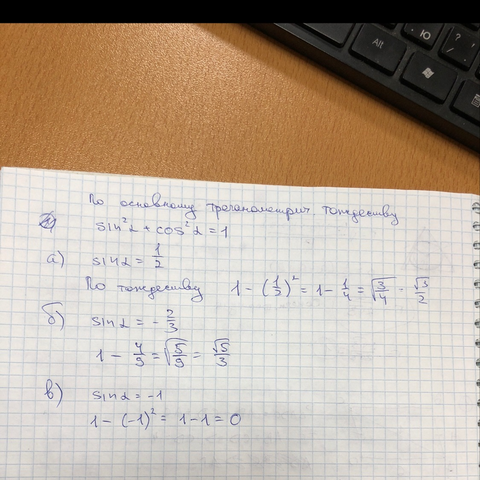 Alt
Ю
?
По основному тригонометрич тождеству
sin²α + cos²α = 1
а) sinα = 1/2
По тождеству 1 - (1/2)² = 1 - 1/4 = √3/4 - √3/2
б) sinα = - 2/3
1 - 4/9 = √5/9 = √5/3
в) sinα = -1
1 - (-1)² = 1 - 1 = 0